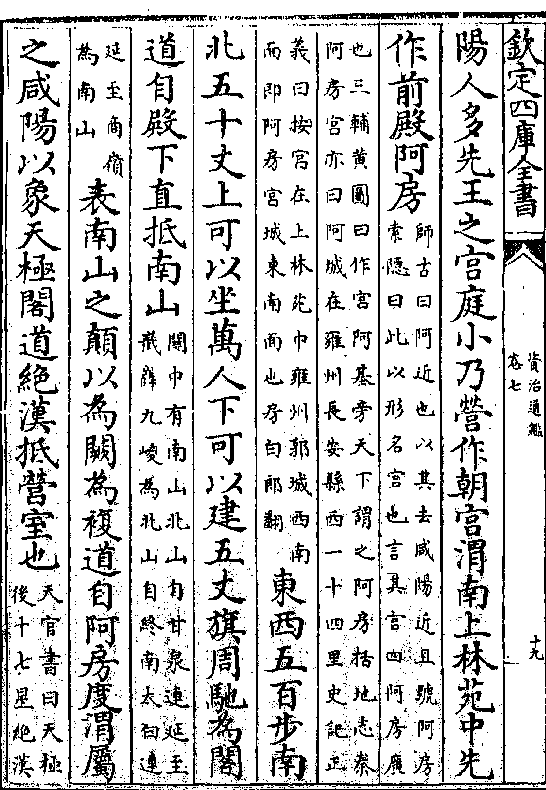 欽定四庫全書
資治通鑑
卷七
十九
陽人多先王之宫庭小乃營作朝宫渭南上林苑中先
作前殿阿房
師古曰阿近也以其去咸陽近且號阿房
索隱曰此以形名宫也言其宫四阿房廣
也三輔黄圖曰作宫阿基旁天下謂之阿房括地志秦
阿房宫亦曰阿城在雍州長安縣西一十四里史記正
義曰按宫在上林苑中雍州郭城西南
面即阿房宫城東南面也房白郎翻
東西五百步南
北五十丈上可以坐萬人下可以建五丈旗周馳為閣
道自殿下直抵南山
關中有南山北山自甘泉連延至
嶻嶭九嵕為北山自終南太白連
延至商嶺
為南山
表南山之顛以為闕為複道自阿房度渭屬
之咸陽以象天極閣道絶漢抵營室也
天官書曰天極
後十七星絶漢